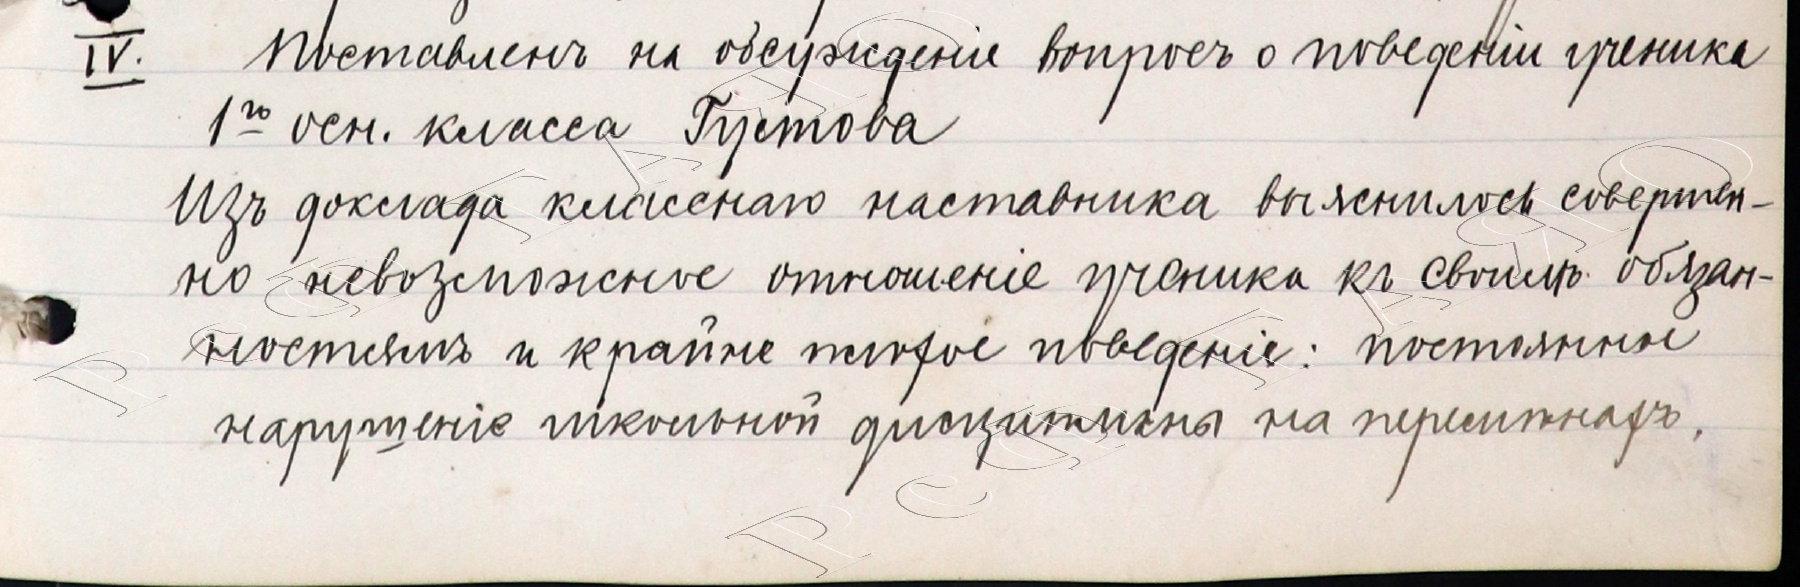 IV. Поставленъ на обсужденіе вопросъ о поведеніи ученика
1го осн. класса Густова
Изъ доклада класснаго наставника выяснилось совершен-
но невозможное отношеніе ученика къ своимъ обязан-
ностямъ и крайне плохое поведеніе: постоянное
нарушеніе школьной дисциплины на переменахъ,